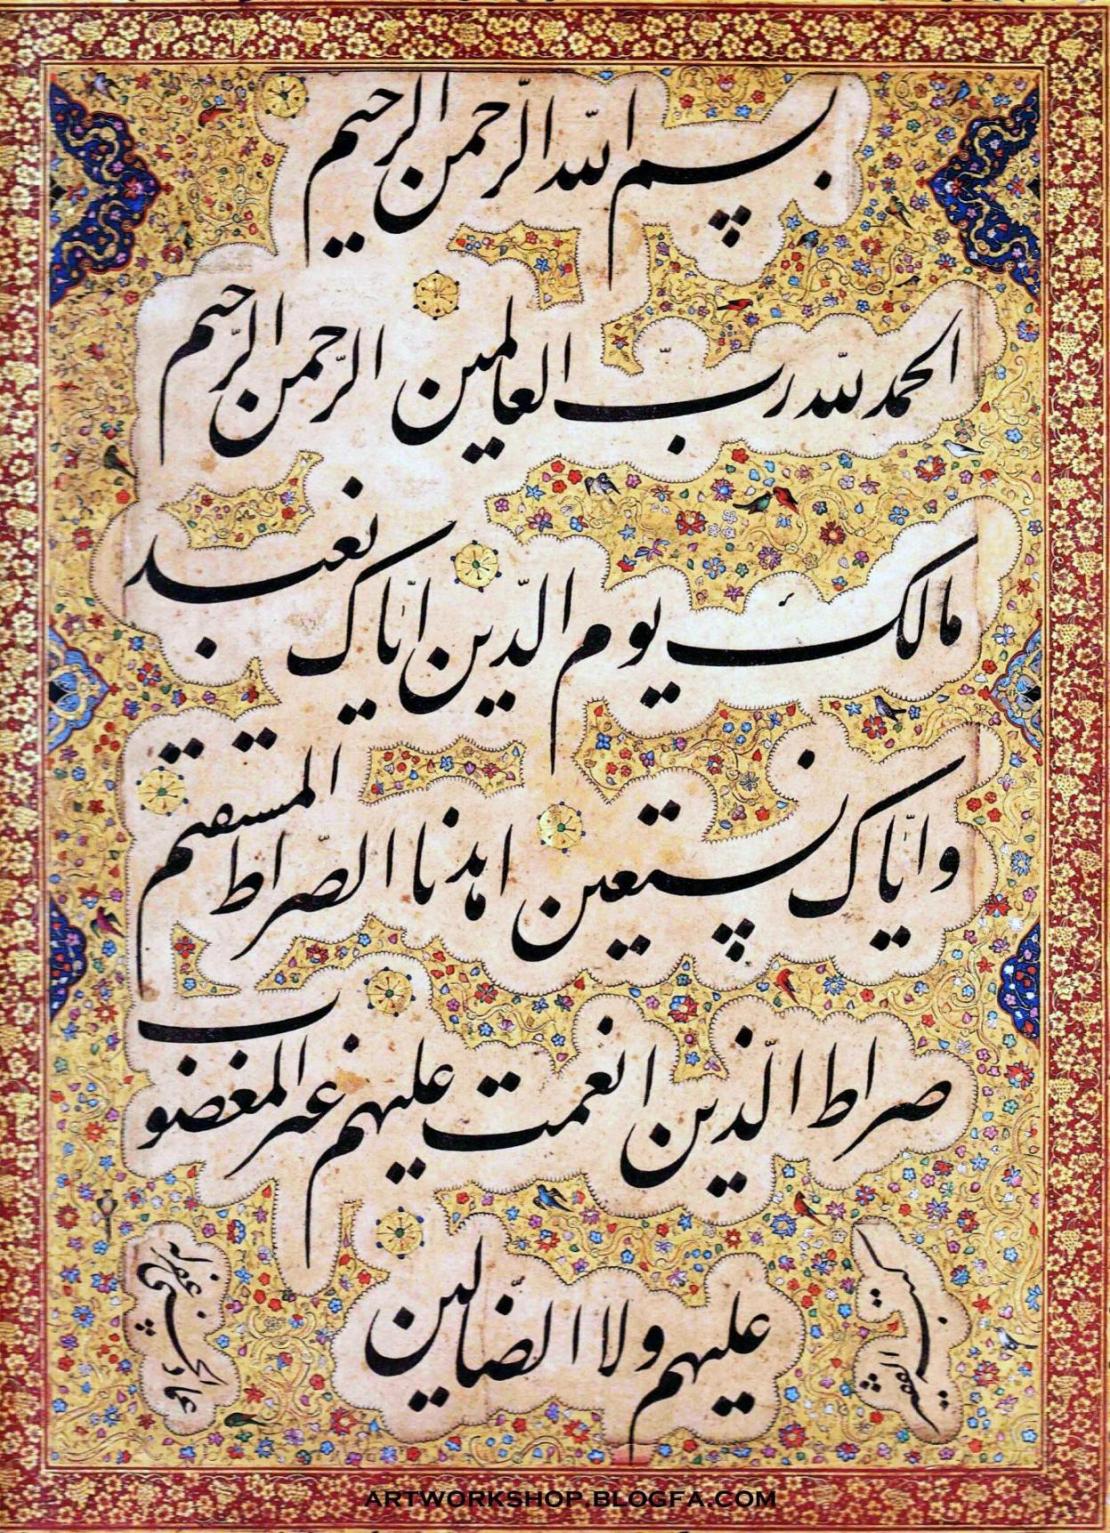 بسم الله الرّحمن الرحیم
الحمد للّه ربّ العالمین الرّحمن الرّحیم
مالک یوم الدّین ایّاک نعبد
و ایّاک نستعین اهدنا الصّراط المستقیم
صراط الّذین انعمت علیهم غیر المغضوب
علیهم و لا الضّالین
کتبه الفقیر
عماد الحسنی غفر له
ARTWORKSHOP.BLOGFA.COM